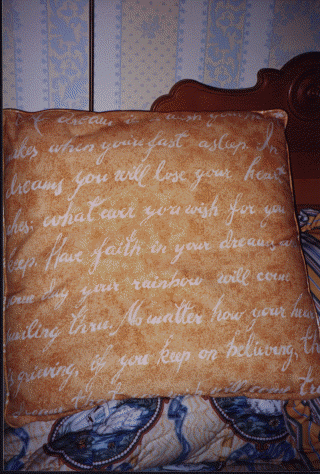 A dream is a wish your
akes when you're fast asleep. In
dreams you will lose your heart
ches: what ever you wish for you
eep. Have faith in your dreams, a
ome day your rainbow will come
miling thru. No matter how your hear
s grieving, if you keep on believing, th
will come tru